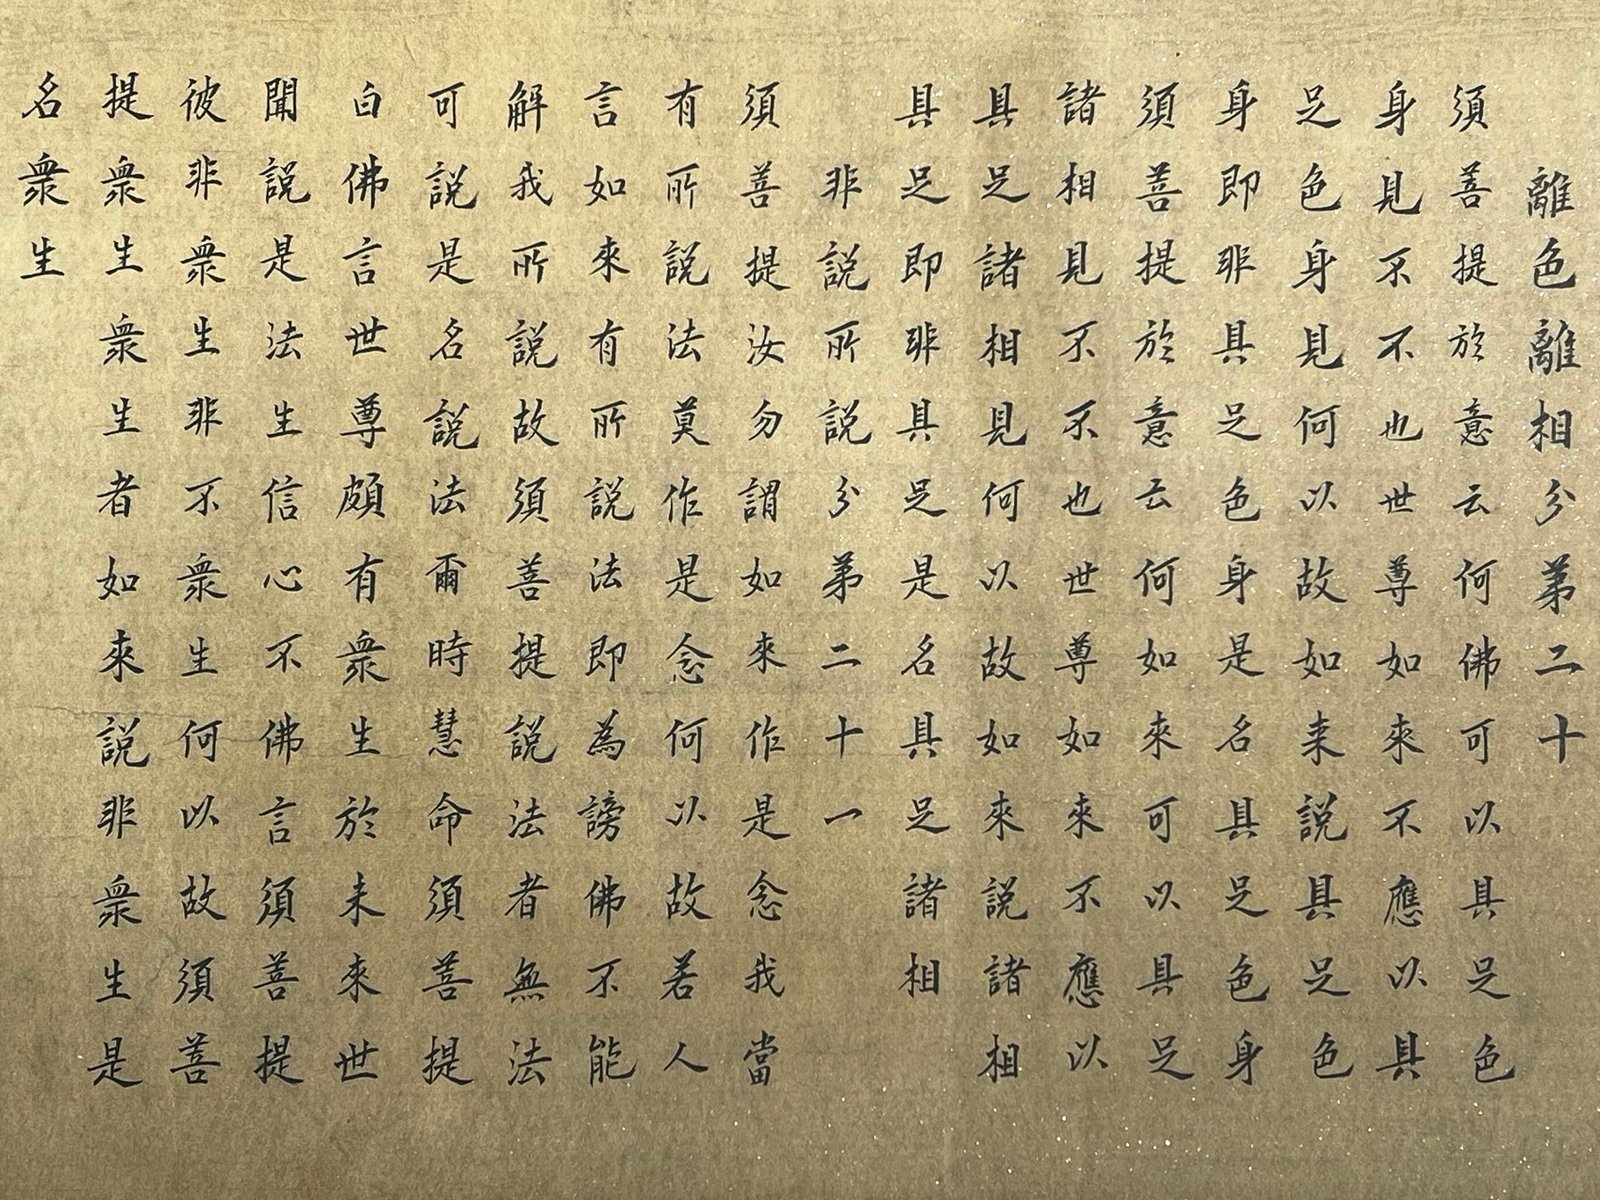 離色離相分第二十
須菩提於意云何佛可以具足色
身見不不也世尊如來不應以具
足色身見何以故如来說具足色
身即非具足色身是名具足色身
須菩提於意云何如來可以具足
諸相見不不也世尊如來不應以
具足諸相見何以故如來說諸相
具足即非具足是名具足諸相
非說所說分第二十一
須菩提汝勿謂如來作是念我當
有所說法莫作是念何以故若人
言如來有所說法即為謗佛不能
解我所說故須菩提說法者無法
可說是名說法爾時慧命須菩提
白佛言世尊頗有衆生於未來世
聞說是法生信心不佛言須菩提
彼非衆生非不衆生何以故須菩
提衆生衆生者如來說非衆生是
名衆生